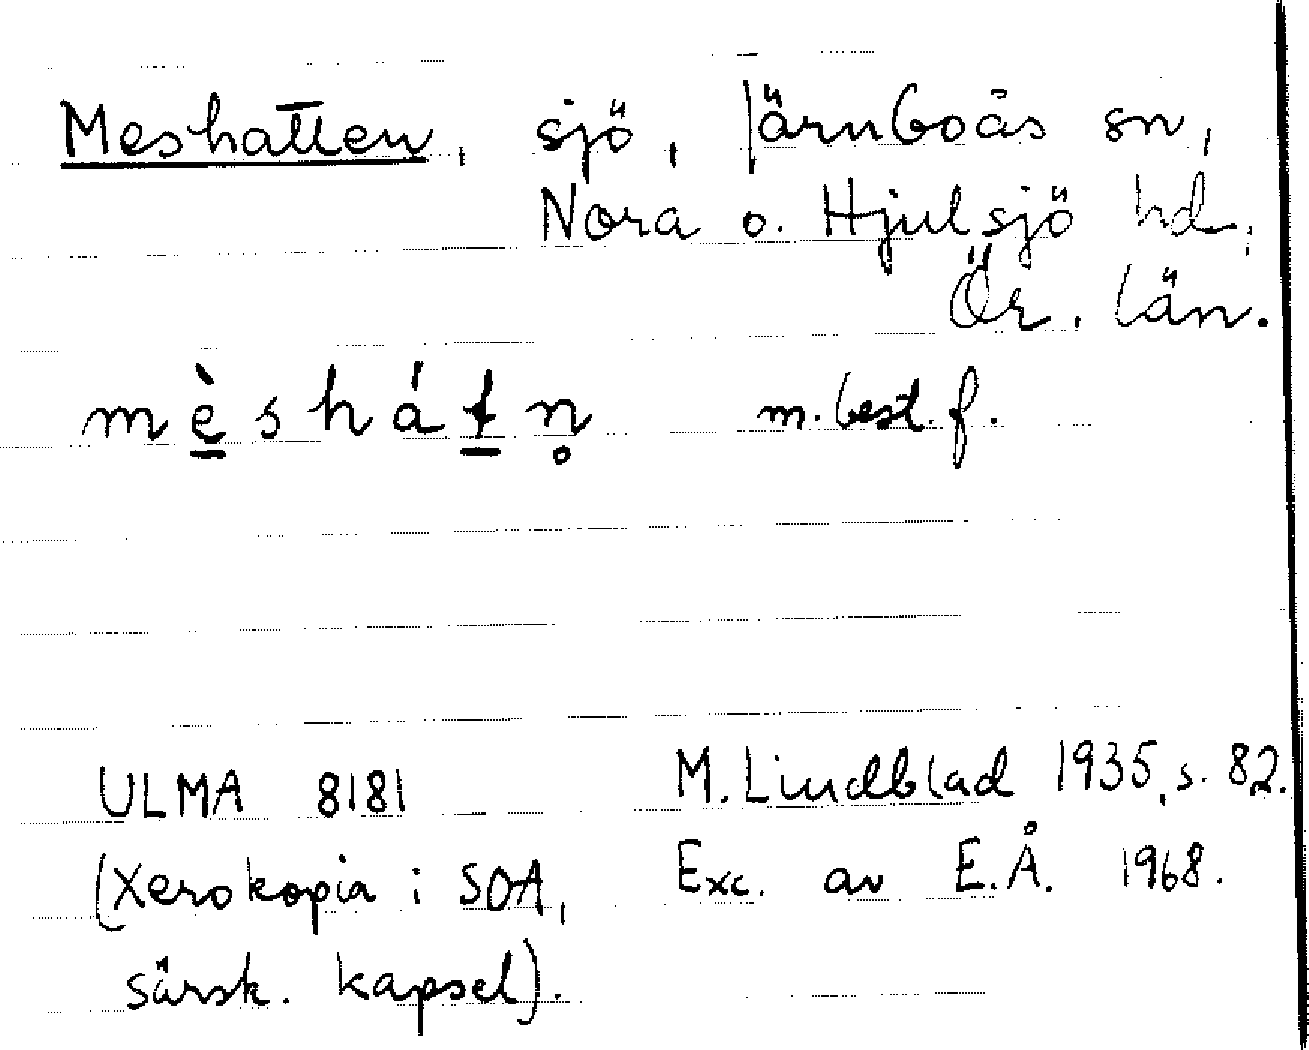 Meshatten, sjö, Järnboås sn,
Nora o. Hjulsjö hd,
Ör. län.
m è̱ s h á ṯ n̥ m. best. f.
ULMA 8181 M. Lindblad 1935, s. 82.
(Xerokopia i SOA, Exc. av E.Å. 1968.
särsk. kapsel).